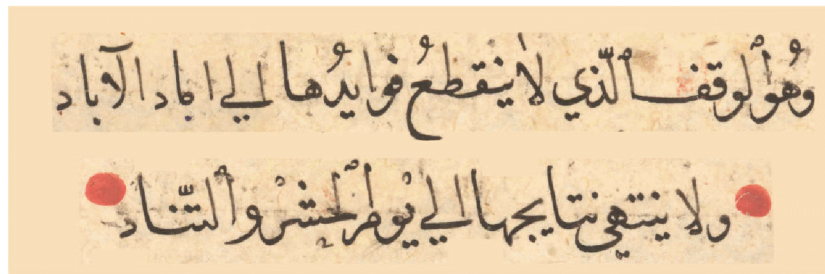 وهُو ٱلوقف ٱلّذي لا ينقطعُ فوايدُها الي اباد الآباد
ولا ينتهي نتايجها الي يْوم ٱلحشْر وٱلتّناد